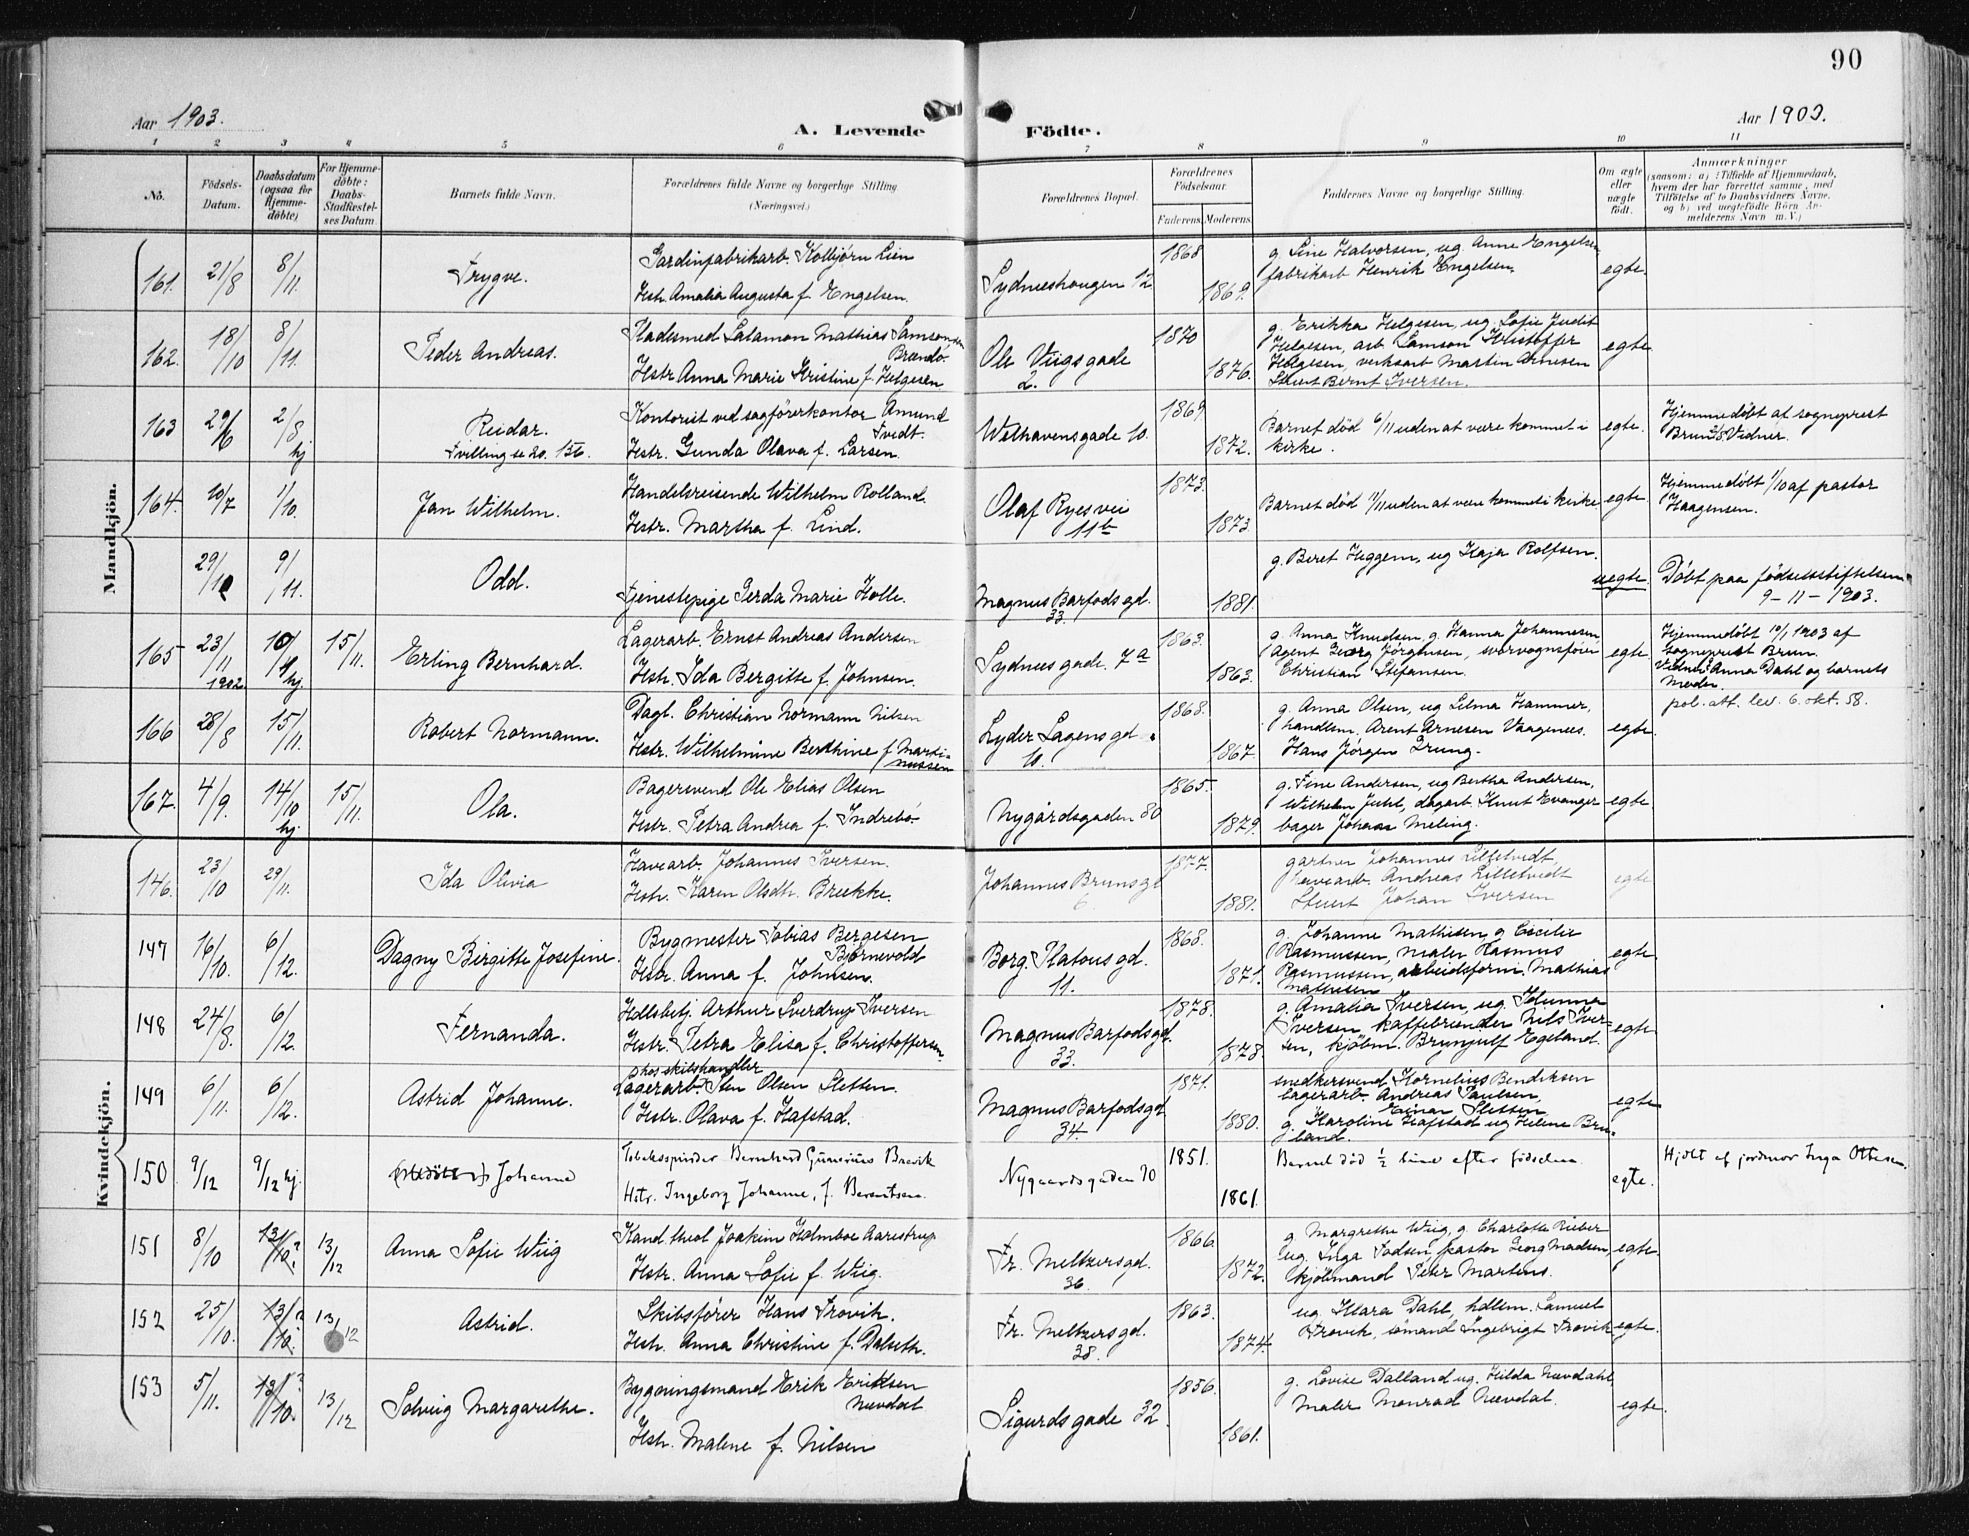 90
Aar 1903.
A. Levende Födte.
Aar 1903.
1 2 3 4 5 6 7 8 9 10 11
No.
Födsels-Datum.
Daabsdatum (ogsaa for Hjemme-döbte)
For Hjemme-döbte: Daabs-Stadfæstel-ses Datum.
Barnets fulde Navn.
Forældrenes fulde Navne og borgerlige Stilling
(Næringsvei.)
Forældrenes Bopæl.
Forældrenes Födselsaar.
Faderens Moderens
Faddernes Navne og borgerlige Stilling.
Om ægte eller uægte födt.
Anmærkninger
(saasom: a) Tilfælde af Hjemmedaab,
hvem der har forrettet samme, med
Tilföielse af to Daabsvidners Navne,
og b) ved uægtefödte Börn An-
melderens Navn m. V.)
Mandkjön.
161. 21/8 8/11. Trygve.
Gardinfabrikarb. Kolbjørn Lien
Hstr. Amalia Augusta f. Engelsen.
Sydneshougen 12
1868 1869.
g. Sine Halvorsen, ug. Anne Engelsen
fabrikarb Henrik Engelsen.
egte
162. 18/10 8/11. Peder Andreas.
Pladesmed Salamon Mathias Samsonsen
Brændo.
Hstr Anna Marie Kristine f. Helgesen
Ole Viigs gade
2.
1870 1876.
g. Erikka Helgesen, ug. Sofie Judit
Helgesen, arb Samson Kristoffer
Helgesen, verksarb Martin Arnesen
Stuert Bernt Iversen.
egte
163 29/6 2/8 hj Reidar.
Tvilling se no. 156.
Kontorist ved sagförerkontor Amund
Tvedt.
Hstr. Gunda Olava f. Larsen.
Welhavensgade 10.
1869. 1872.
Barnet död 6/11 uden at være kommet i
kirke.
egte.
Hjemmedöbt af sogneprest
Brun. Vidner.
164. 10/7 1/10 Jan Wilhelm.
Handelsreisende Wilhelm Rolland.
Hstr. Martha f. Lind.
Olaf Ryesvei
11b
1873. 1873
Barnet död /11 uden at være kommet i kirke
egte
Hjemmedöbt 1/10 af pastor
Haagensen.
29/10 9/11. Odd.
Tjenestepige Gerda Marie Holle.
Magnus Barfods gd.
33.
1881.
g. Beret Heggem, ug Kaja Rolfsen.
uegte
Döbt paa födselsstiftelsen
9-11-1903.
165 23/11 1902. 10/1 hj. 15/11. Erling Bernhard.
Lagerarb. Ernst Andreas Andersen
Hstr. Ida Bergitte f. Johnsen.
Sydnesgade 7a
1863. 1863.
g. Anna Knudsen, g. Hanna Johannesen
Agent Georg Jørgensen, sporvognsförer
Christian Stefansen.
egte
Hjemmedöbt 10/1 1903 af
sogneprest Brun.
Vidner: Anna Dahl og barnets
Moder.
166 28/8 15/11. Robert Normann.
Dagl. Christian Normann Nilsen
Hstr. Wilhelmine Berthine f. Marti-
nussen
Lyder Sagens gd.
10.
1868. 1867
g. Anna Olsen, ug Selma Hammer,
handlm. Arent Arnesen Vaagenes.
Hans Jørgen Grung.
egte.
pol. att. lev. 6. okt. 58.
167. 4/9. 14/10 hj. 15/11. Ola.
Bagersvend Ole Elias Olsen
Hstr. Petra Andrea f. Indrebö
Nygårdsgaden 80
1865. 1879.
g. Tine Andersen, ug Bertha Andersen,
Wilhelm Juhl, dagarb. Knut Evanger
bager Johan Meling.
egte.
Kvindekjön.
146. 23/10 29/11. Ida Olivia
Havearb. Johannes Iversen.
Hstr. Karen Olsdtr. Brekke.
Johannes Brunsgt
6.
1877. 1881.
gartner Johannes Lilletvedt,
havearb. Andreas Lilletvedt
Stuert Johan Iversen
egte
147 16/10. 6/12. Dagny Birgitte Josefine.
Bygmester Tobias Bergesen
Bjørnevold
Hstr. Anna f. Johnsen.
Borg. Platous gd.
11.
1868. 1871.
g. Johanne Mathisen, g Cecilie
Rasmussen, maler Rasmus
Rasmussen, arbeidsform. Mathias
Mathisen
egte.
148 24/8. 6/12. Fernanda.
Hdlsbetj. Arthur Sverdrup Iversen
Hstr. Petra Elisa f. Christoffersen
Magnus Barfodsgd.
33.
1878. 1878.
g. Amalia Iversen, ug. Idunna
Iversen, kaffebrænder Nils Iver-
sen, kjöbm. Brynjulf Egeland.
egte
149 6/11. 6/12. Astrid Johanne.
Lagerarb. Sten Olsen Sletten.
Hstr. Olava f. Hafstad.
Magnus Barfodsgd
34.
1871. 1880.
snedkersvend Kornelius Bendiksen
lagerarb. Andreas Paulsen,
Einar Sletten
g. Karoline Hafstad ug Helene Bru-
land.
egte
150 9/12 9/12 hj. Johanne
Tobaksspinder Bernhard Gunerius Brevik
Hstr. Ingeborg Johanne, f. Berentsen.
Nygaardsgaden 70
1851. 1861.
Barnet död ½ time efter födselen
egte.
Hjdbt af jordmor Inga Ottesen.
151 8/10 13/10? 13/12 Anna Sofie Wiig
Kand. theol Joakim Holmboe Aarestrup
Hstr. Anna Sofie f. Wiig.
Fr. Meltzersgd.
36.
1866. 1872.
g. Margrethe Wiig, g. Charlotte Rieber
ug. Inga Todsen, pastor Georg Madsen,
kjöbmand Peter Martens.
egte.
152 25/10. 13/10? 13/12 Astrid.
Skibsförer Hans Trovik.
Hstr. Anna Christine f. Dalseth.
Fr. Meltzersgd.
38.
1863. 1874.
ug. Klara Dahl, hdlm. Samuel
Trovik, sömand Ingebrigt Trovik
egte.
153 5/11. 13/10? 13/12 Solveig Margarethe.
Bygningsmand Erik Eriksen
Nævdal
Hstr. Malene f. Nilsen
Sigurdsgade 32.
1856. 1861.
g. Lovise Dalland ug. Hilda Nævdahl
Maler Monrad Nævdal.
egte.